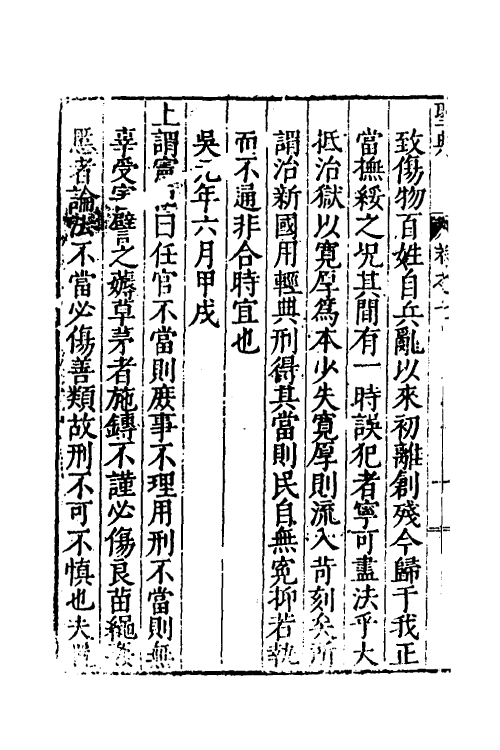 聖典
致傷物百姓自兵亂以來初離創殘今歸于我正
當撫綏之况其間有一時誤犯者寧可盡法乎大
抵治獄以寛厚爲本少失寛厚則流入苛刻矣所
謂治新國用輕典刑得其當則民自無寃抑若執
而不通非合時宜也
吳元年六月甲戌
上謂憲曰任官不當則庶事不理用刑不當則無
辜受害譬之薅草茅者施鎛不謹必傷良苗繩
惡者論法不當必傷善類故刑不可不慎也夫